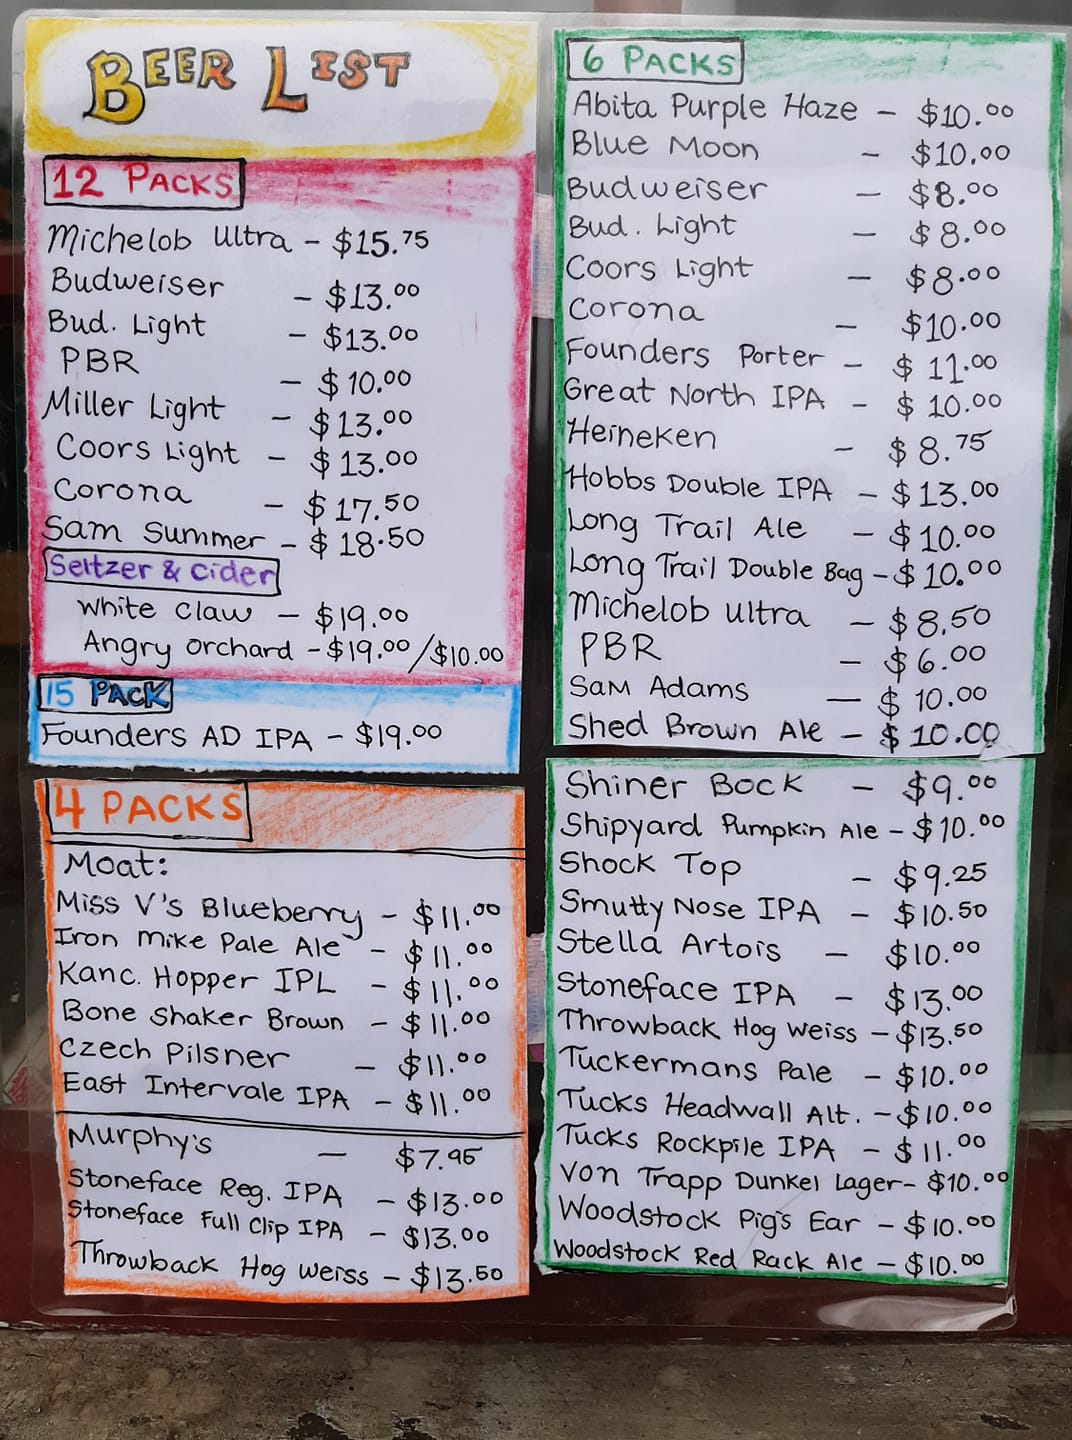 BEER LIST
12 PACKS
Michelob Ultra - $15.75
Budweiser - $13.00
Bud. Light - $13.00
PBR - $10.00
Miller Light - $13.00
Coors Light - $13.00
Corona - $17.50
Sam Summer - $18.50
Seltzer & Cider
White Claw - $19.00
Angry Orchard - $19.00/$10.00
15 PACK
Founders AD IPA - $19.00
4 PACKS
Moat:
Miss V's Blueberry - $11.00
Iron Mike Pale Ale - $11.00
Kanc. Hopper IPL - $11.00
Bone Shaker Brown - $11.00
Czech Pilsner - $11.00
East Intervale IPA - $11.00
Murphy's - $7.95
Stoneface Reg. IPA - $13.00
Stoneface Full Clip IPA - $13.00
Throwback Hog Weiss - $13.50
6 PACKS
Abita Purple Haze - $10.00
Blue Moon - $10.00
Budweiser - $8.00
Bud. Light - $8.00
Coors Light - $8.00
Corona - $10.00
Founders Porter - $11.00
Great North IPA - $10.00
Heineken - $8.75
Hobbs Double IPA - $13.00
Long Trail Ale - $10.00
Long Trail Double Bag - $10.00
Michelob Ultra - $8.50
PBR - $6.00
Sam Adams - $10.00
Shed Brown Ale - $10.00
Shiner Bock - $9.00
Shipyard Pumpkin Ale - $10.00
Shock Top - $9.25
Smutty Nose IPA - $10.50
Stella Artois - $10.00
Stoneface IPA - $13.00
Throwback Hog Weiss - $13.50
Tuckermans Pale - $10.00
Tucks Headwall Alt. - $10.00
Tucks Rockpile IPA - $11.00
Von Trapp Dunkel Lager - $10.00
Woodstock Pig's Ear - $10.00
Woodstock Red Rack Ale - $10.00